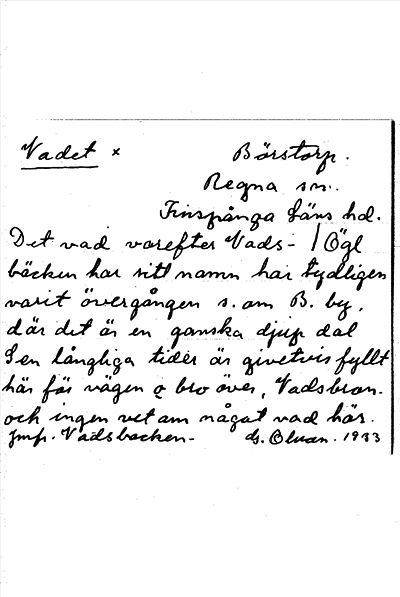 Vadet x Börstorp.
Regna sn.
Finspånga Läns hd.
Det vad varefter Vads- / Ögl
bäcken har sitt namn har tydligen
varit övergången s. om B. by,
där det är en ganska djup dal
Sen långliga tider är givetvis fyllt
här för vägen o bro över, Vadsbron.
och ingen vet om något vad här.
Jmf. Vadsbacken. G. Olsson. 1933